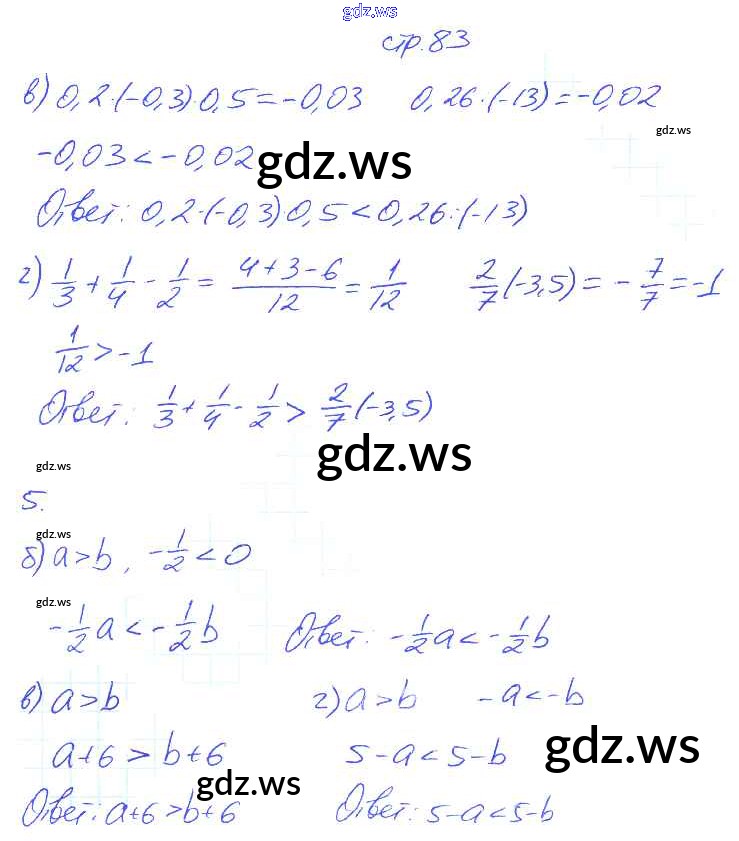 gdz.ws
стр.83
в) 0,2·(-0,3)·0,5=-0,03 0,26:(-13)=-0,02
gdz.ws
-0,03<-0,02
gdz.ws
Ответ: 0,2·(-0,3)0,5<0,26:(-13)
г) 1/3+1/4-1/2=(4+3-6)/12=1/12 2/7(-3,5)=-7/7=-1
1/12>-1
Ответ: 1/3+1/4-1/2>2/7(-3,5)
gdz.ws
gdz.ws
5.
gdz.ws
б) a>b, -1/2<0
gdz.ws
-1/2a<-1/2b Ответ: -1/2a<-1/2b
в) a>b г) a>b -a<-b
a+6>b+6 5-a<5-b
gdz.ws
gdz.ws
Ответ: a+6>b+6 Ответ: 5-a<5-b